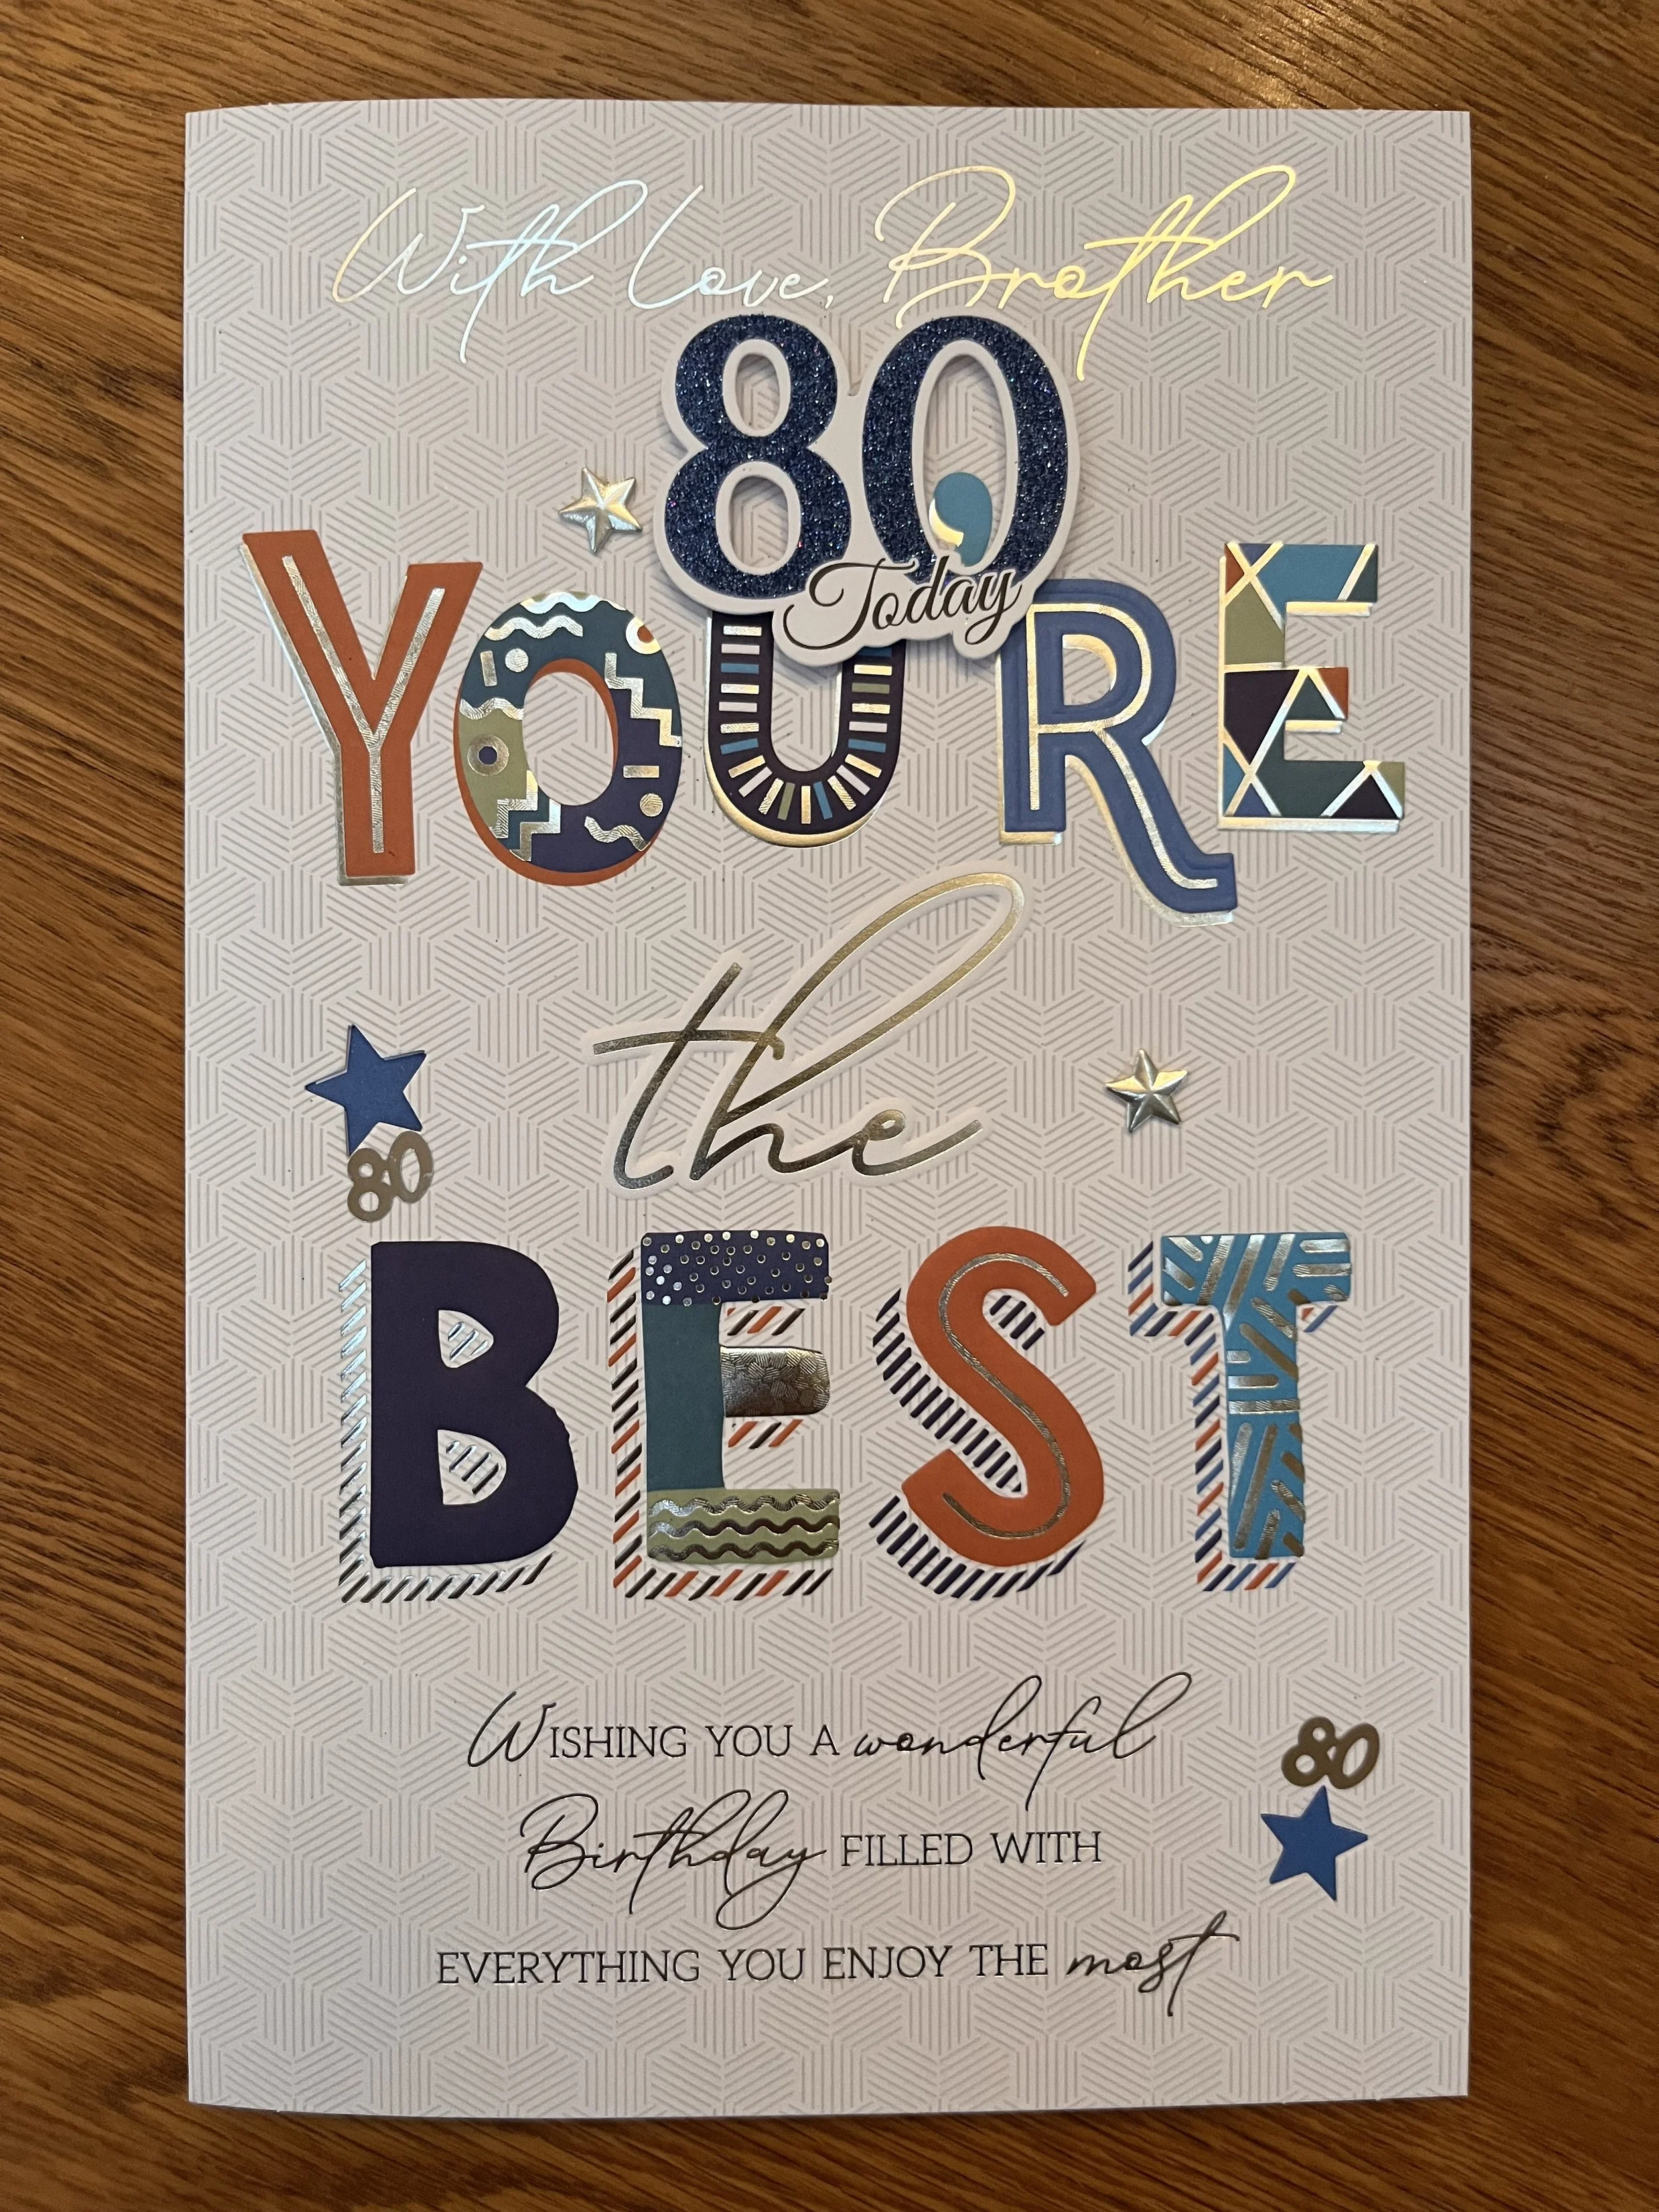 With Love, Brother
80
Today
YOU'RE
the
80
BEST
WISHING YOU A wonderful
80
Birthday FILLED WITH
EVERYTHING YOU ENJOY THE most